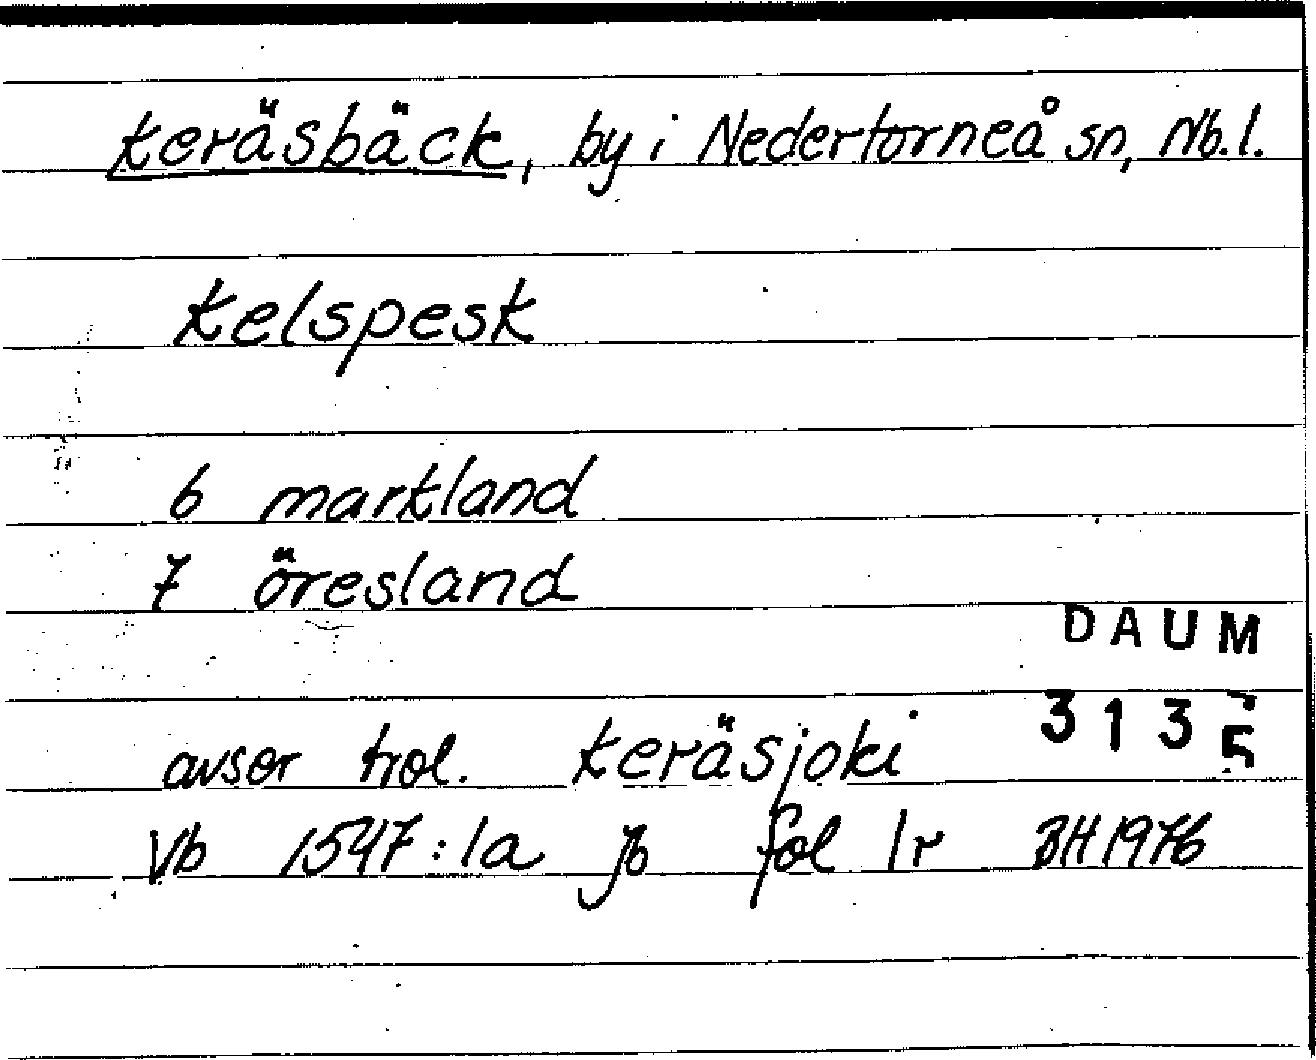 Keräsbäck, by i Nedertorneå sn, Nb.l.
Kelspesk
6 markland
7 öresland
DAUM
3135
avser trol. Keräsjoki
Vb 1547:1a Jb fol 1r BH 1976